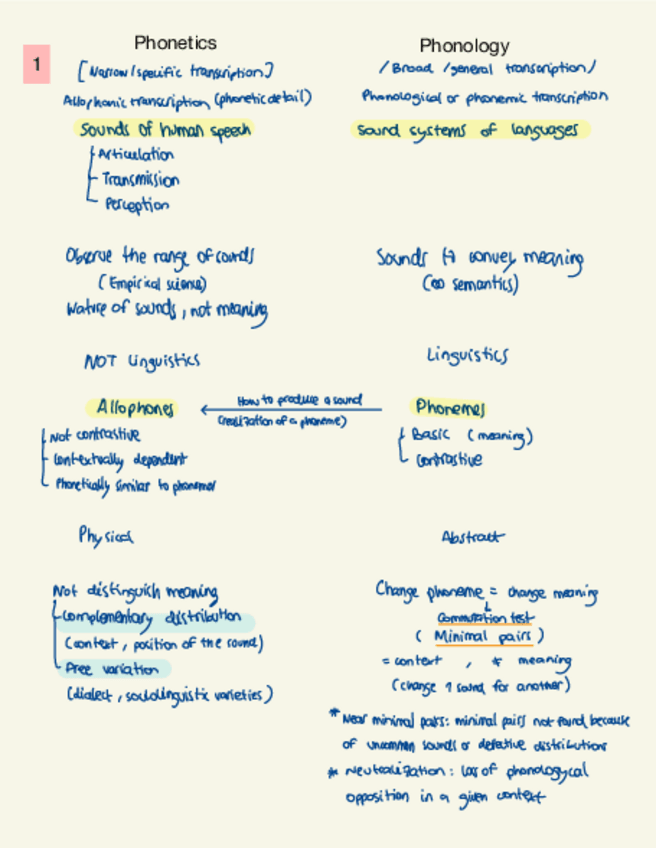 1
Phonetics
[Narrow/specific transcription]
Allophonic transcription (phonetic detail)
Sounds of human speech
Articulation
Transmission
Perception
Observe the range of sounds
(Empirical science)
Nature of sounds, not meaning
NOT Linguistics
Allophones
Not contrastive
Contextually dependent
Phonetically similar to phonemes
Physical
Not distinguish meaning
Complementary distribution
(context, position of the sound)
Free variation
(dialect, sociolinguistic varieties)
How to produce a sound
(realization of a phoneme)
Phonology
/Broad/general transcription/
Phonological or phonemic transcription
Sound systems of languages
Sounds to convey meaning
(∞ semantics)
Linguistics
Phonemes
Basic (meaning)
Contrastive
Abstract
Change phoneme = change meaning
Commutation test
(Minimal pairs)
= context, ≠ meaning
(change 1 sound for another)
* Near minimal pairs: minimal pairs not found because
of uncommon sounds or defective distributions
* Neutralization: loss of phonologycal
opposition in a given context